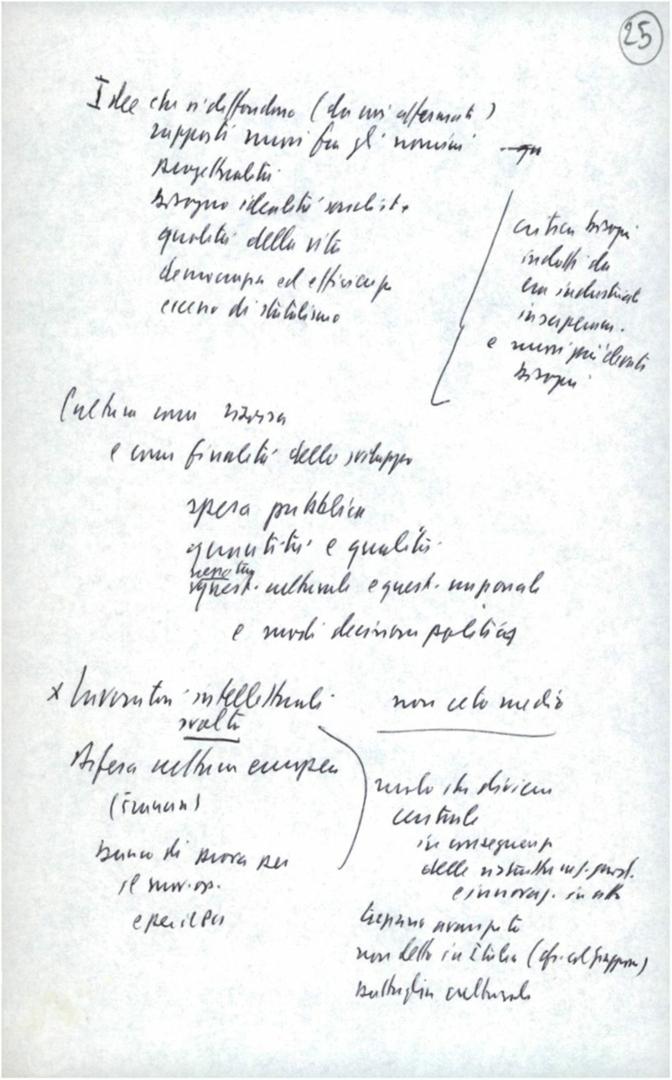 25
Idee che si diffondono (da noi affermate)
rapporti nuovi fra gli uomini
progettualità
bisogno idealità socialista
qualità della vita
democrazia ed efficienza
eccesso di statalismo
critica bisogni
indotti da
era industriale
e nuovi più elevati
bisogni
Cultura come risorsa
e come finalità dello sviluppo
spesa pubblica
quantità e qualità
quest. culturale e quest. nazionale
e modi decisione politica
x Lavoratori intellettuali
svolta
non ceto medio
Difesa cultura europea
banco di prova per
il mov. op.
e per il PCI
ruolo che diviene
centrale
in conseguenza
delle ristrutturaz. prod.
e innovaz. in atto
non detto in Italia (cfr. col Giappone)
battaglia culturale